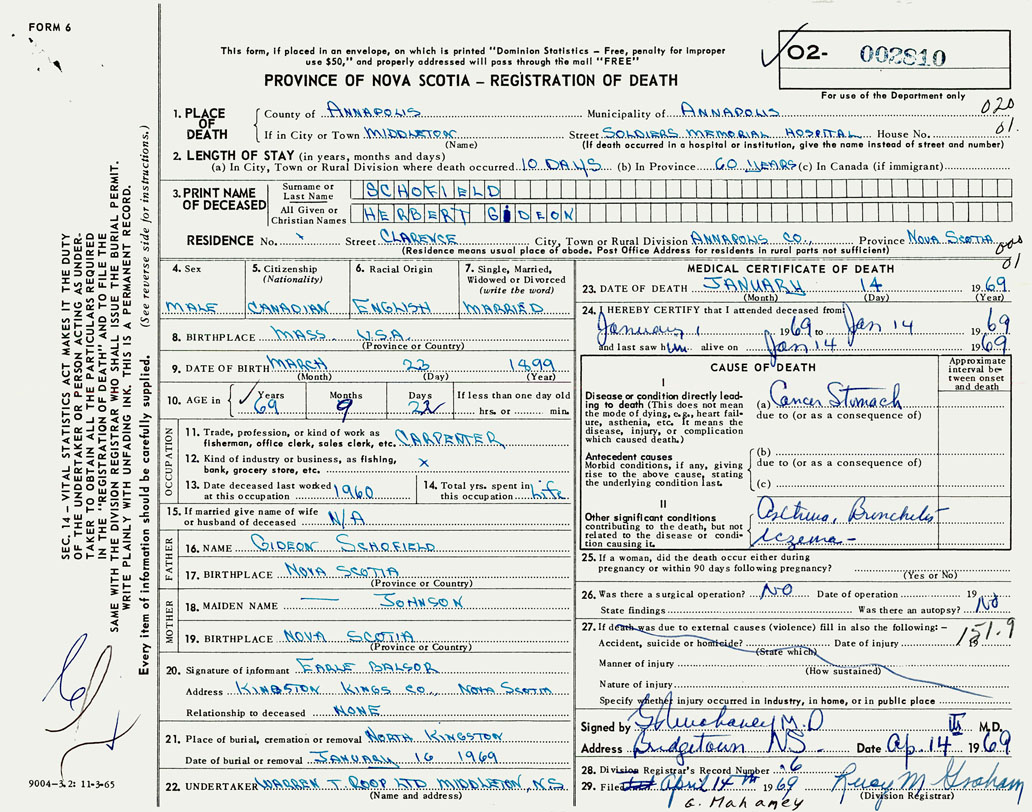 FORM 6
This form, if placed in an envelope, on which is printed "Dominion Statistics – Free, penalty for improper
use $50," and properly addressed will pass through the mail "FREE"
PROVINCE OF NOVA SCOTIA – REGISTRATION OF DEATH
O2- 002810
For use of the Department only
020
01.
1. PLACE OF DEATH
County of ANNAPOLIS Municipality of ANNAPOLIS
If in City or Town MIDDLETON Street SOLDIERS MEMORIAL HOSPITAL House No.
(Name) (If death occurred in a hospital or institution, give the name instead of street and number)
2. LENGTH OF STAY (in years, months and days)
(a) In City, Town or Rural Division where death occurred 10 DAYS (b) In Province 60 YEARS (c) In Canada (if immigrant)
3. PRINT NAME OF DECEASED
Surname or Last Name SCHOFIELD
All Given or Christian Names HERBERT GIDEON
RESIDENCE No. Street CLARENCE City, Town or Rural Division ANNAPOLIS CO., Province NOVA SCOTIA
(Residence means usual place of abode. Post Office Address for residents in rural parts not sufficient)
01
4. Sex
MALE
5. Citizenship (Nationality)
CANADIAN
6. Racial Origin
ENGLISH
7. Single, Married, Widowed or Divorced (write the word)
MARRIED
8. BIRTHPLACE MASS U.S.A.
(Province or Country)
9. DATE OF BIRTH MARCH 23 1899
(Month) (Day) (Year)
10. AGE in Years 69 Months 9 Days 22 If less than one day old
hrs. or min.
OCCUPATION
11. Trade, profession, or kind of work as
fisherman, office clerk, sales clerk, etc. CARPENTER
12. Kind of industry or business, as fishing,
bank, grocery store, etc. x
13. Date deceased last worked at this occupation 1960
14. Total yrs. spent in this occupation Life
15. If married give name of wife
or husband of deceased N/A
FATHER
16. NAME GIDEON SCHOFIELD
17. BIRTHPLACE NOVA SCOTIA
(Province or Country)
MOTHER
18. MAIDEN NAME — JOHNSON
19. BIRTHPLACE NOVA SCOTIA
(Province or Country)
20. Signature of informant EARLE BALSOR
Address KINGSTON KINGS CO., NOVA SCOTIA
Relationship to deceased NONE
21. Place of burial, cremation or removal NORTH KINGSTON
Date of burial or removal JANUARY 16 1969
22. UNDERTAKER WARREN T ROOP LTD MIDDLETON, N.S.
(Name and address)
MEDICAL CERTIFICATE OF DEATH
23. DATE OF DEATH JANUARY 14 1969
(Month) (Day) (Year)
24. I HEREBY CERTIFY that I attended deceased from
January 1 1969 to Jan 14 1969
and last saw him alive on Jan 14 1969
CAUSE OF DEATH
Approximate interval between onset and death
I
Disease or condition directly lead-
ing to death (This does not mean
the mode of dying, e.g., heart fail-
ure, asthenia, etc. It means the
disease, injury, or complication
which caused death.)
(a) Cancer Stomach
due to (or as a consequence of)
Antecedent causes
Morbid conditions, if any, giving
rise to the above cause, stating
the underlying condition last.
(b)
due to (or as a consequence of)
(c)
II
Other significant conditions
contributing to the death, but not
related to the disease or condi-
tion causing it.
Asthma, Bronchitis
Eczema –
25. If a woman, did the death occur either during
pregnancy or within 90 days following pregnancy?
(Yes or No)
26. Was there a surgical operation? NO Date of operation 19
State findings Was there an autopsy? No
27. If death was due to external causes (violence) fill in also the following:–
151.9
Accident, suicide or homicide? Date of injury 19
(State which)
Manner of injury
(How sustained)
Nature of injury
Specify whether injury occurred in industry, in home, or in public place
Signed by M.D M.D.
Address Bridgetown NS. Date Ap. 14 1969
28. Division Registrar's Record Number 6
29. Filed April 14th 1969 Lucy M Graham
(Division Registrar)
G. Mahaney
SEC. 14 – VITAL STATISTICS ACT MAKES IT THE DUTY
OF THE UNDERTAKER OR PERSON ACTING AS UNDER-
TAKER TO OBTAIN ALL THE PARTICULARS REQUIRED
IN THE "REGISTRATION OF DEATH" AND TO FILE THE
SAME WITH THE DIVISION REGISTRAR WHO SHALL ISSUE THE BURIAL PERMIT.
WRITE PLAINLY WITH UNFADING INK. THIS IS A PERMANENT RECORD.
Every item of information should be carefully supplied. (See reverse side for instructions.)
9004-3.2: 11-3-65